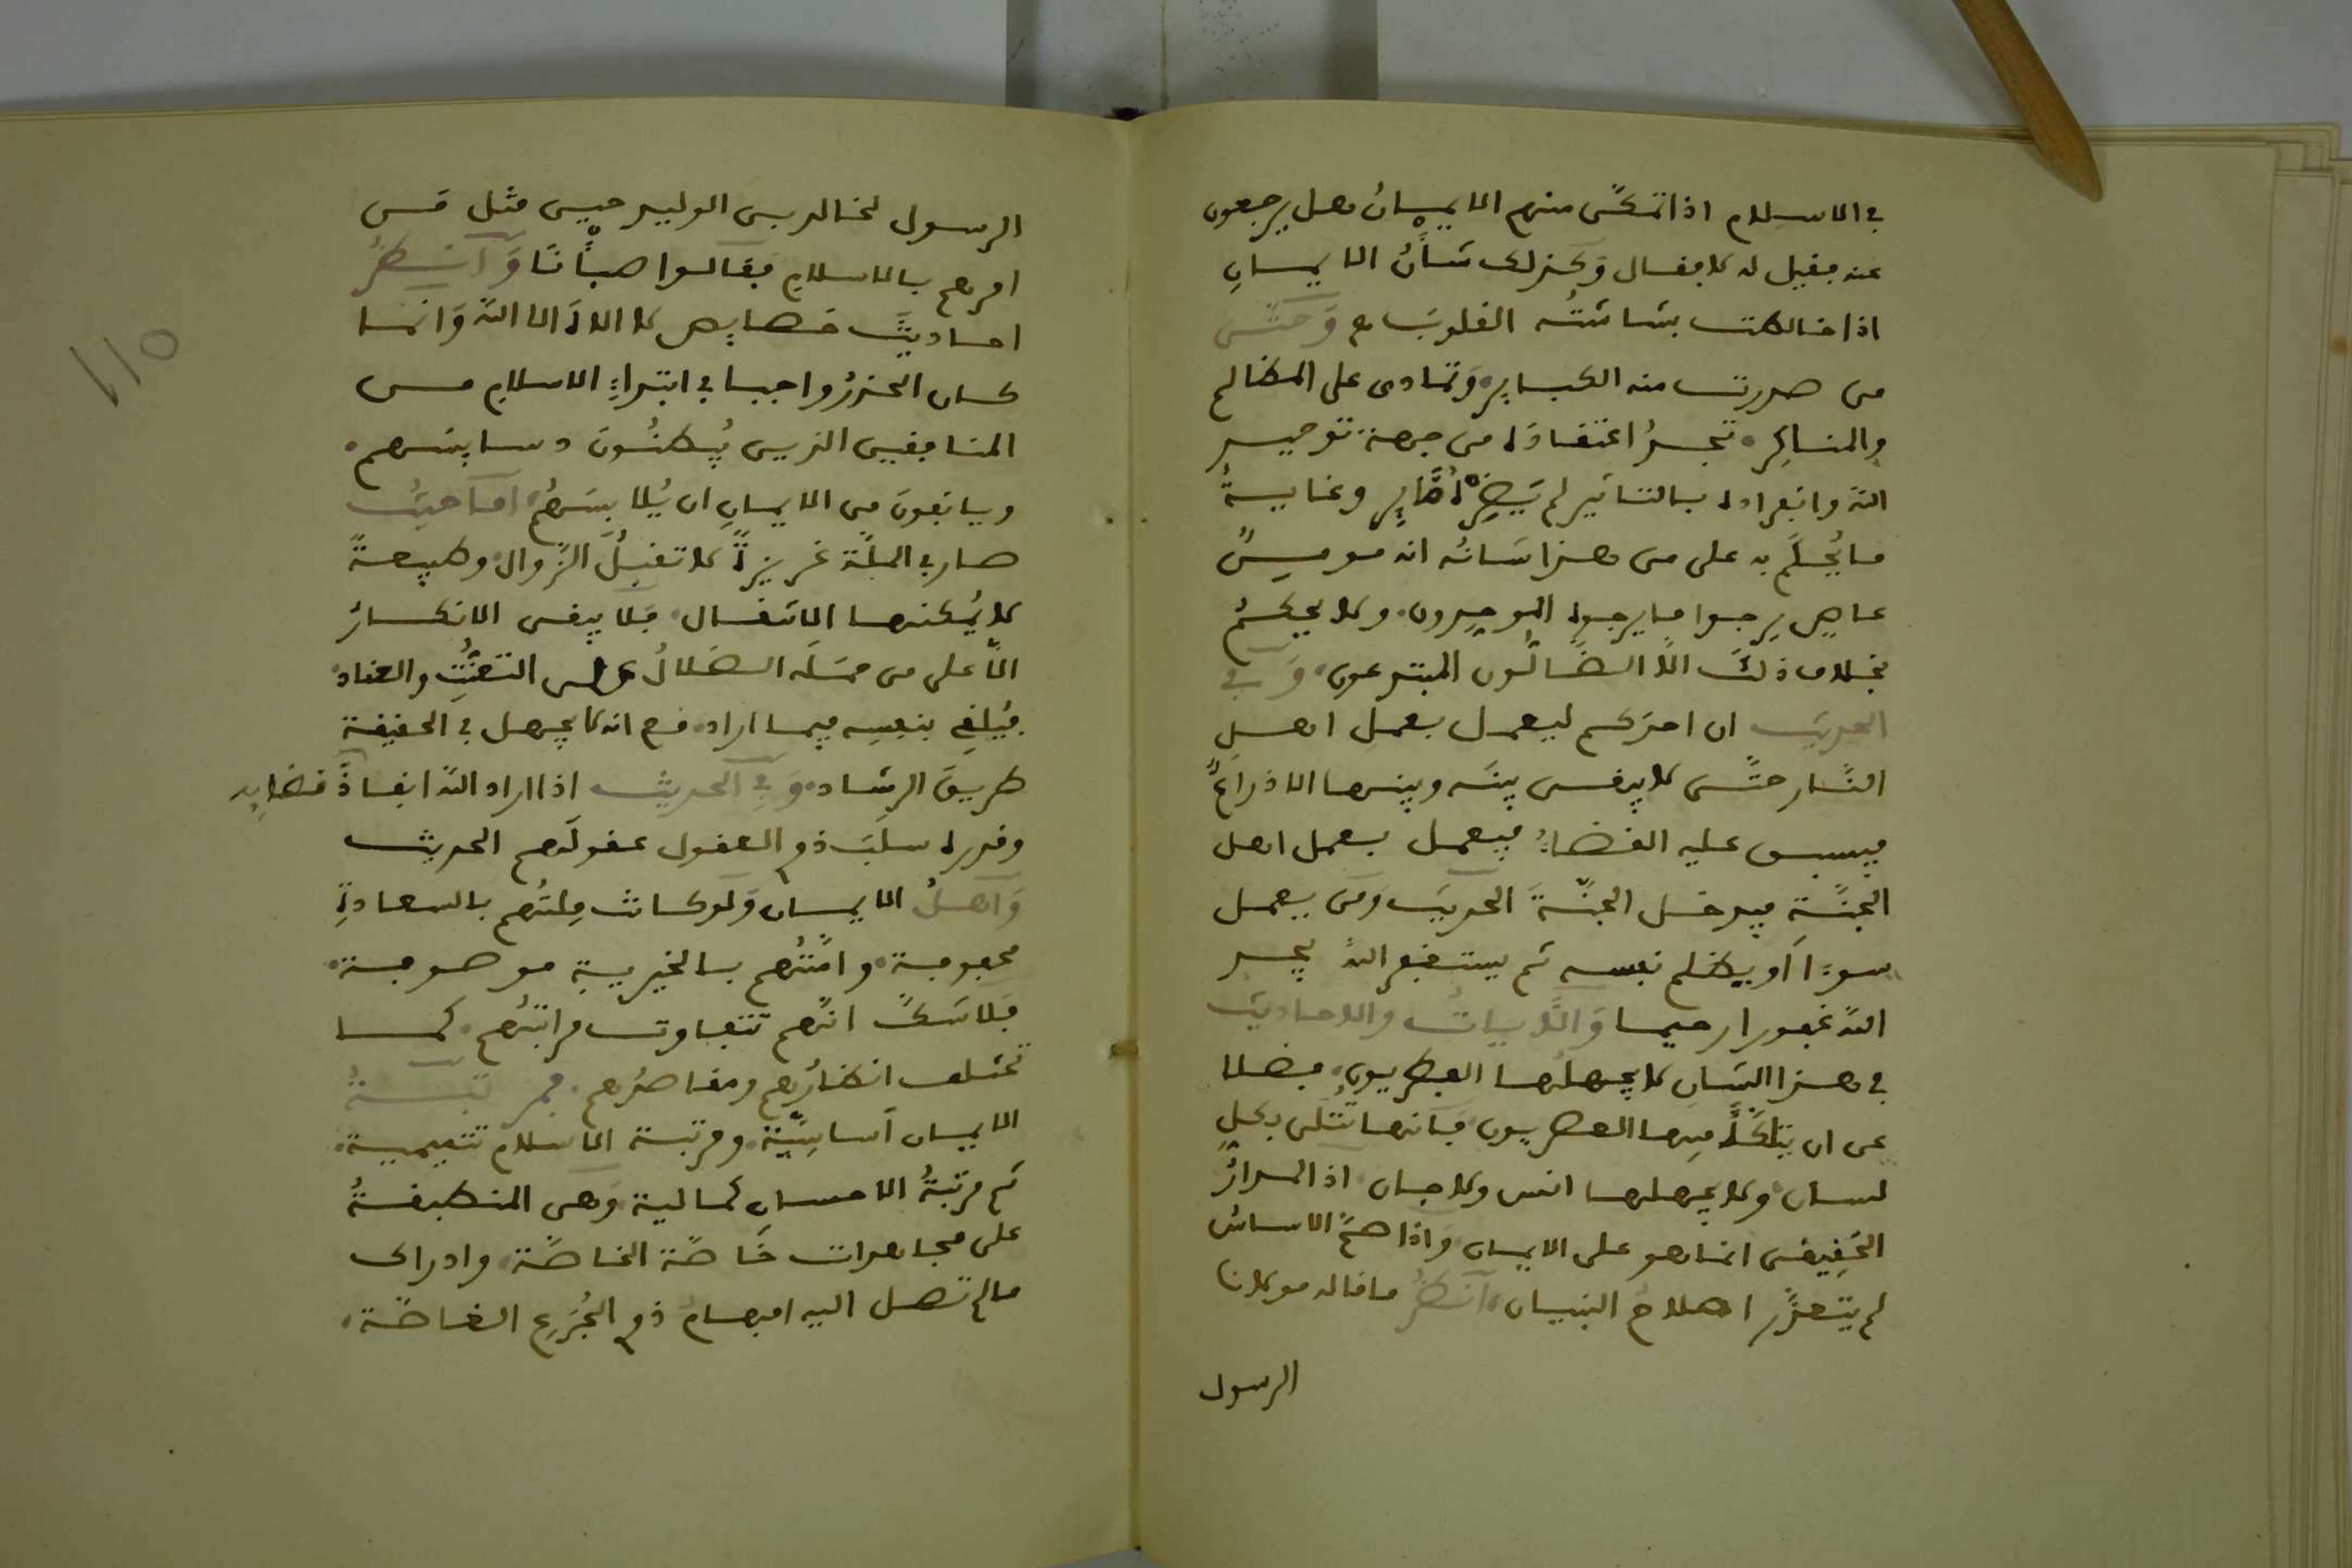 في الاسلام اذا تمكّن منهم الايمانُ هل يرجعون
عنه فقيل له لا فقال وكذلك شأنُ الايمانِ
اذا خالطت بشاشتُه القلوبَ ع وَحتّى
من صدرت منه الكباير، وتمادى على المظالم
والمناكِر، تجدُ اعتقادَه من جهة توحيد
الله وانفراده بالتاثير لم يَضِرْهُ ضَّايِر وغايةُ
ما يُحكَم به على من هذا شانُه انه مومنٌ
عاصٍ يرجوا ما يرجوه الموحِدون، ولا يحكمُ
بخلاف ذلكَ الّا الضَّالّون المبتدعون، وَفي
الحديث ان احدَكم ليعمل بعمل اهلِ
النّار حتّى لا يبقى بينَه وبينها الا ذراعٌ
فيسبق عليه القضاءُ فيعمل بعمل اهل
الجنّةِ فيدخل الجنّةَ الحديث وَمَن يعمل
سوءًا أو يظلم نفسه ثم يستغفر اللهَ يجد
اللهَ غفورا رحيما وَالآيياتُ والاحاديث
في هذا الشان لا يجهلُها الفطريون، فضلا
عن ان يتلكّأ فيها العصريون فانها تُتلى بكل
لسان، ولا يجهلها انس ولا جان اذ المدارُ
الحَقِيقى انما هو على الايمان وَاذا صحّ الاساسُ
لم يتعذّر اصلاحُ البنيان، اُنظُر ما قاله مولانا
الرسول
الرسول لخالد بن الوليد حين مثل مَن
امرهم بالاسلام فقالوا صبأْنا وَاُنظُر
احاديثَ فضايل لا الاهَ الا الله وَانما
كان الحذرُ واجبا في ابتداءِ الاسلام من
المنافقين الذين يُبطنُونَ دسايسَهم،
ويانفونَ من الايمانِ ان يُلابِسَهُم، امّا حيثُ
صار في الملّة غريزةً لا تقبلُ الزّوال، وطبيعةً
لا يُمكنها الانتقال، فلا يبقى الانكارُ
الّا على من مسَّه الضلالُ على التعنُّتِ والعناد،
فيُلقِي بنفسه فيما اراد، مع انه لا يجهل في الحقيقة
طريقَ الرشاد، وَفي الحديث اذا اراد اللهُ انفاذَ قضايِه
وقدره سلبَ ذوِي العقول عقولَهم الحديث
وَاهلُ الايمان وَلو كانت مِلتُهم بالسعادةِ
محفوفة، وامّتُهم بالخيرية موصوفة،
فلا شكّ انّهم تتفاوت مراتبُهم، كما
تختلف انظارُهم ومقاصدُهم، فمرتبةُ
الايمان أساسِيّة، ومرتبة الاسلام تتميمية،
ثم مرتبةُ الاحسانِ كمالية وَهى المنطبقةُ
على مجاهدات خَاصّة الخاصّة، وادراك
مالم تصل اليه افهامُ ذوِي الجُزَعِ الغاصّة،
١١٥